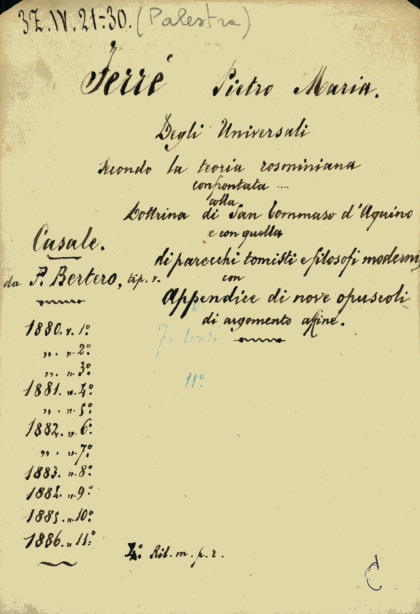 3Z. IV. 21-30. (Palestra)
Ferré Pietro Maria.
Degli Universali
secondo la teoria rosminiana
confrontata ....
colla
Dottrina di San Tommaso d'Aquino
e con quella
di parecchi tomisti e filosofi moderni,
con
Appendice di nove opuscoli
di argomento affine.
Casale.
da P. Bertero, tip. v.
1880. v. 1º
„ . „ 2º
„ . „ 3º
1881. „ 4º
„ . „ 5º
1882. „ 6º
„ . „ 7º
1883. „ 8º
1884. „ 9º
1885. „ 10º
1886. „ 11º
11º
4º Ril. m. p. r.
C